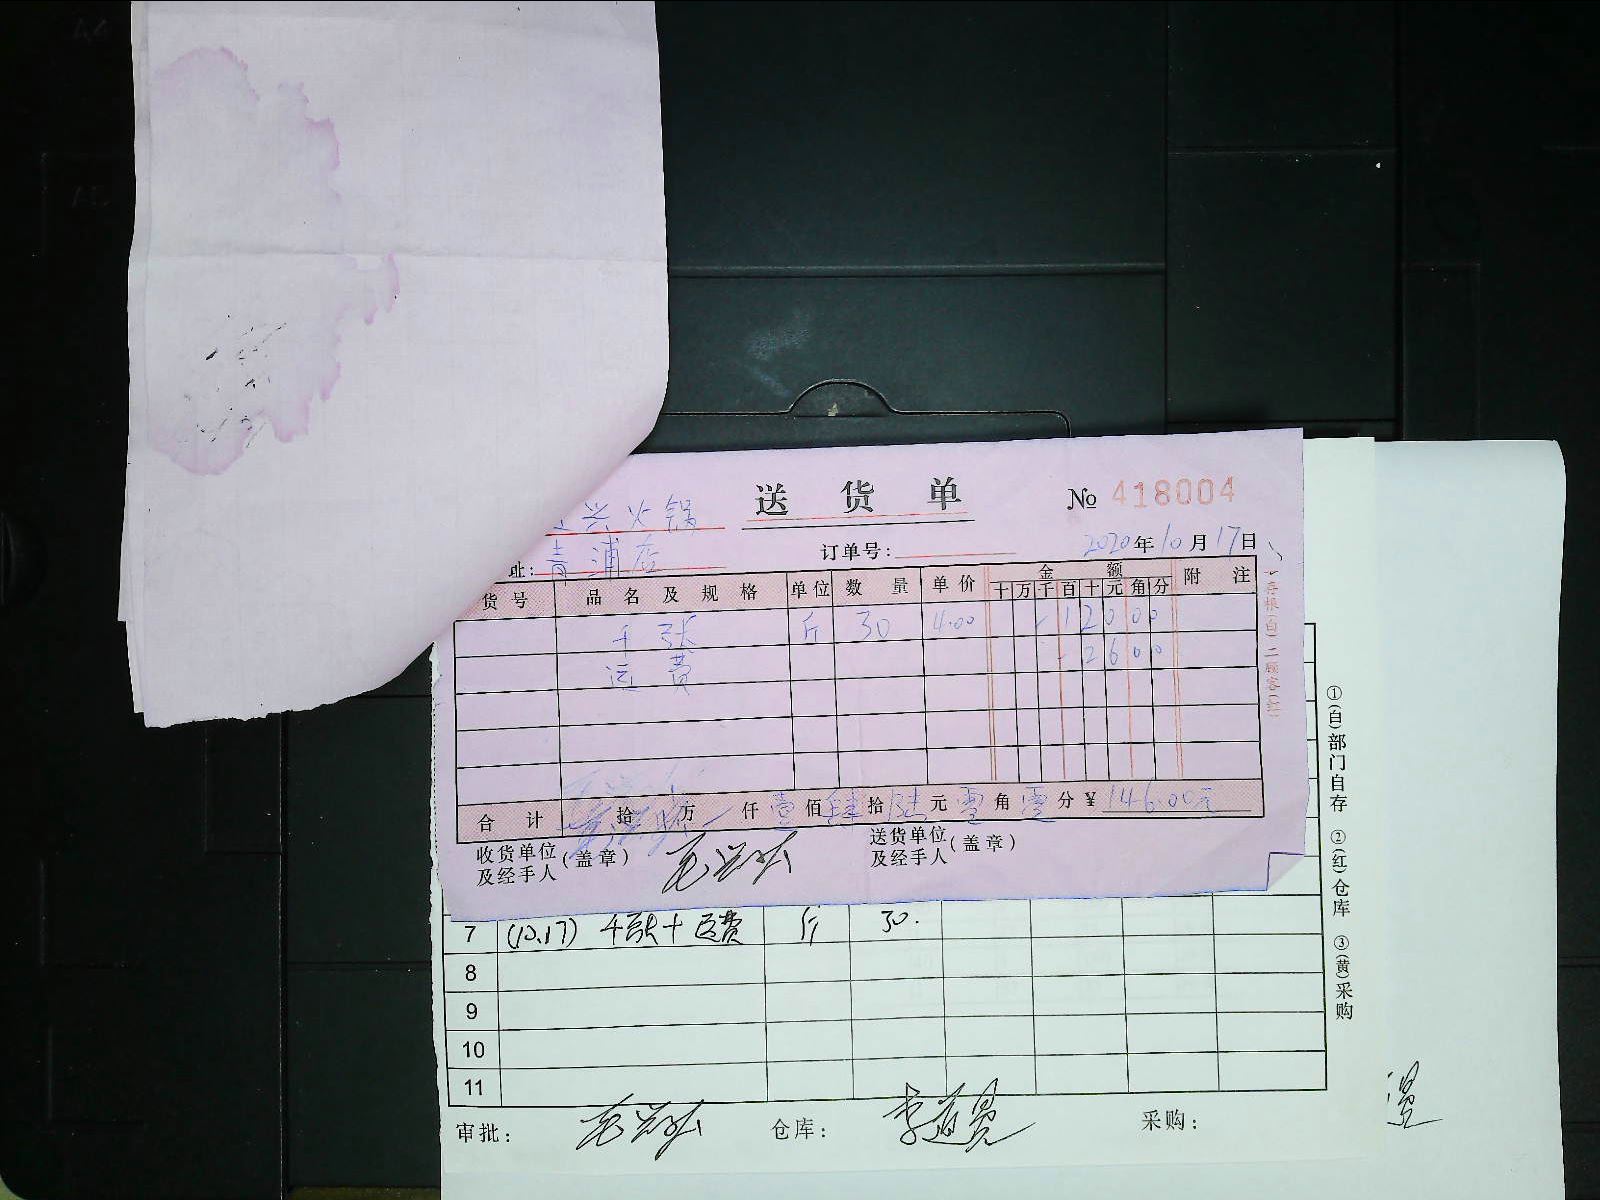 送货单
№ 418004
兴火锅
订单号:
2020年10月17日
址: 青浦店
货号 品名及规格 单位 数量 单价 金额 附注
十万千百十元角分
千张 斤 30 4.00 12000
运费 2600
合计 拾 万 仟壹佰肆拾陆元零角零分 ¥146.00元
收货单位及经手人(盖章)
送货单位及经手人(盖章)
一存根(白) 二顾客(红)
7 (10.17) 千张+运费 斤 30.
8
9
10
11
审批: 仓库: 采购:
①(白)部门自存 ②(红)仓库 ③(黄)采购